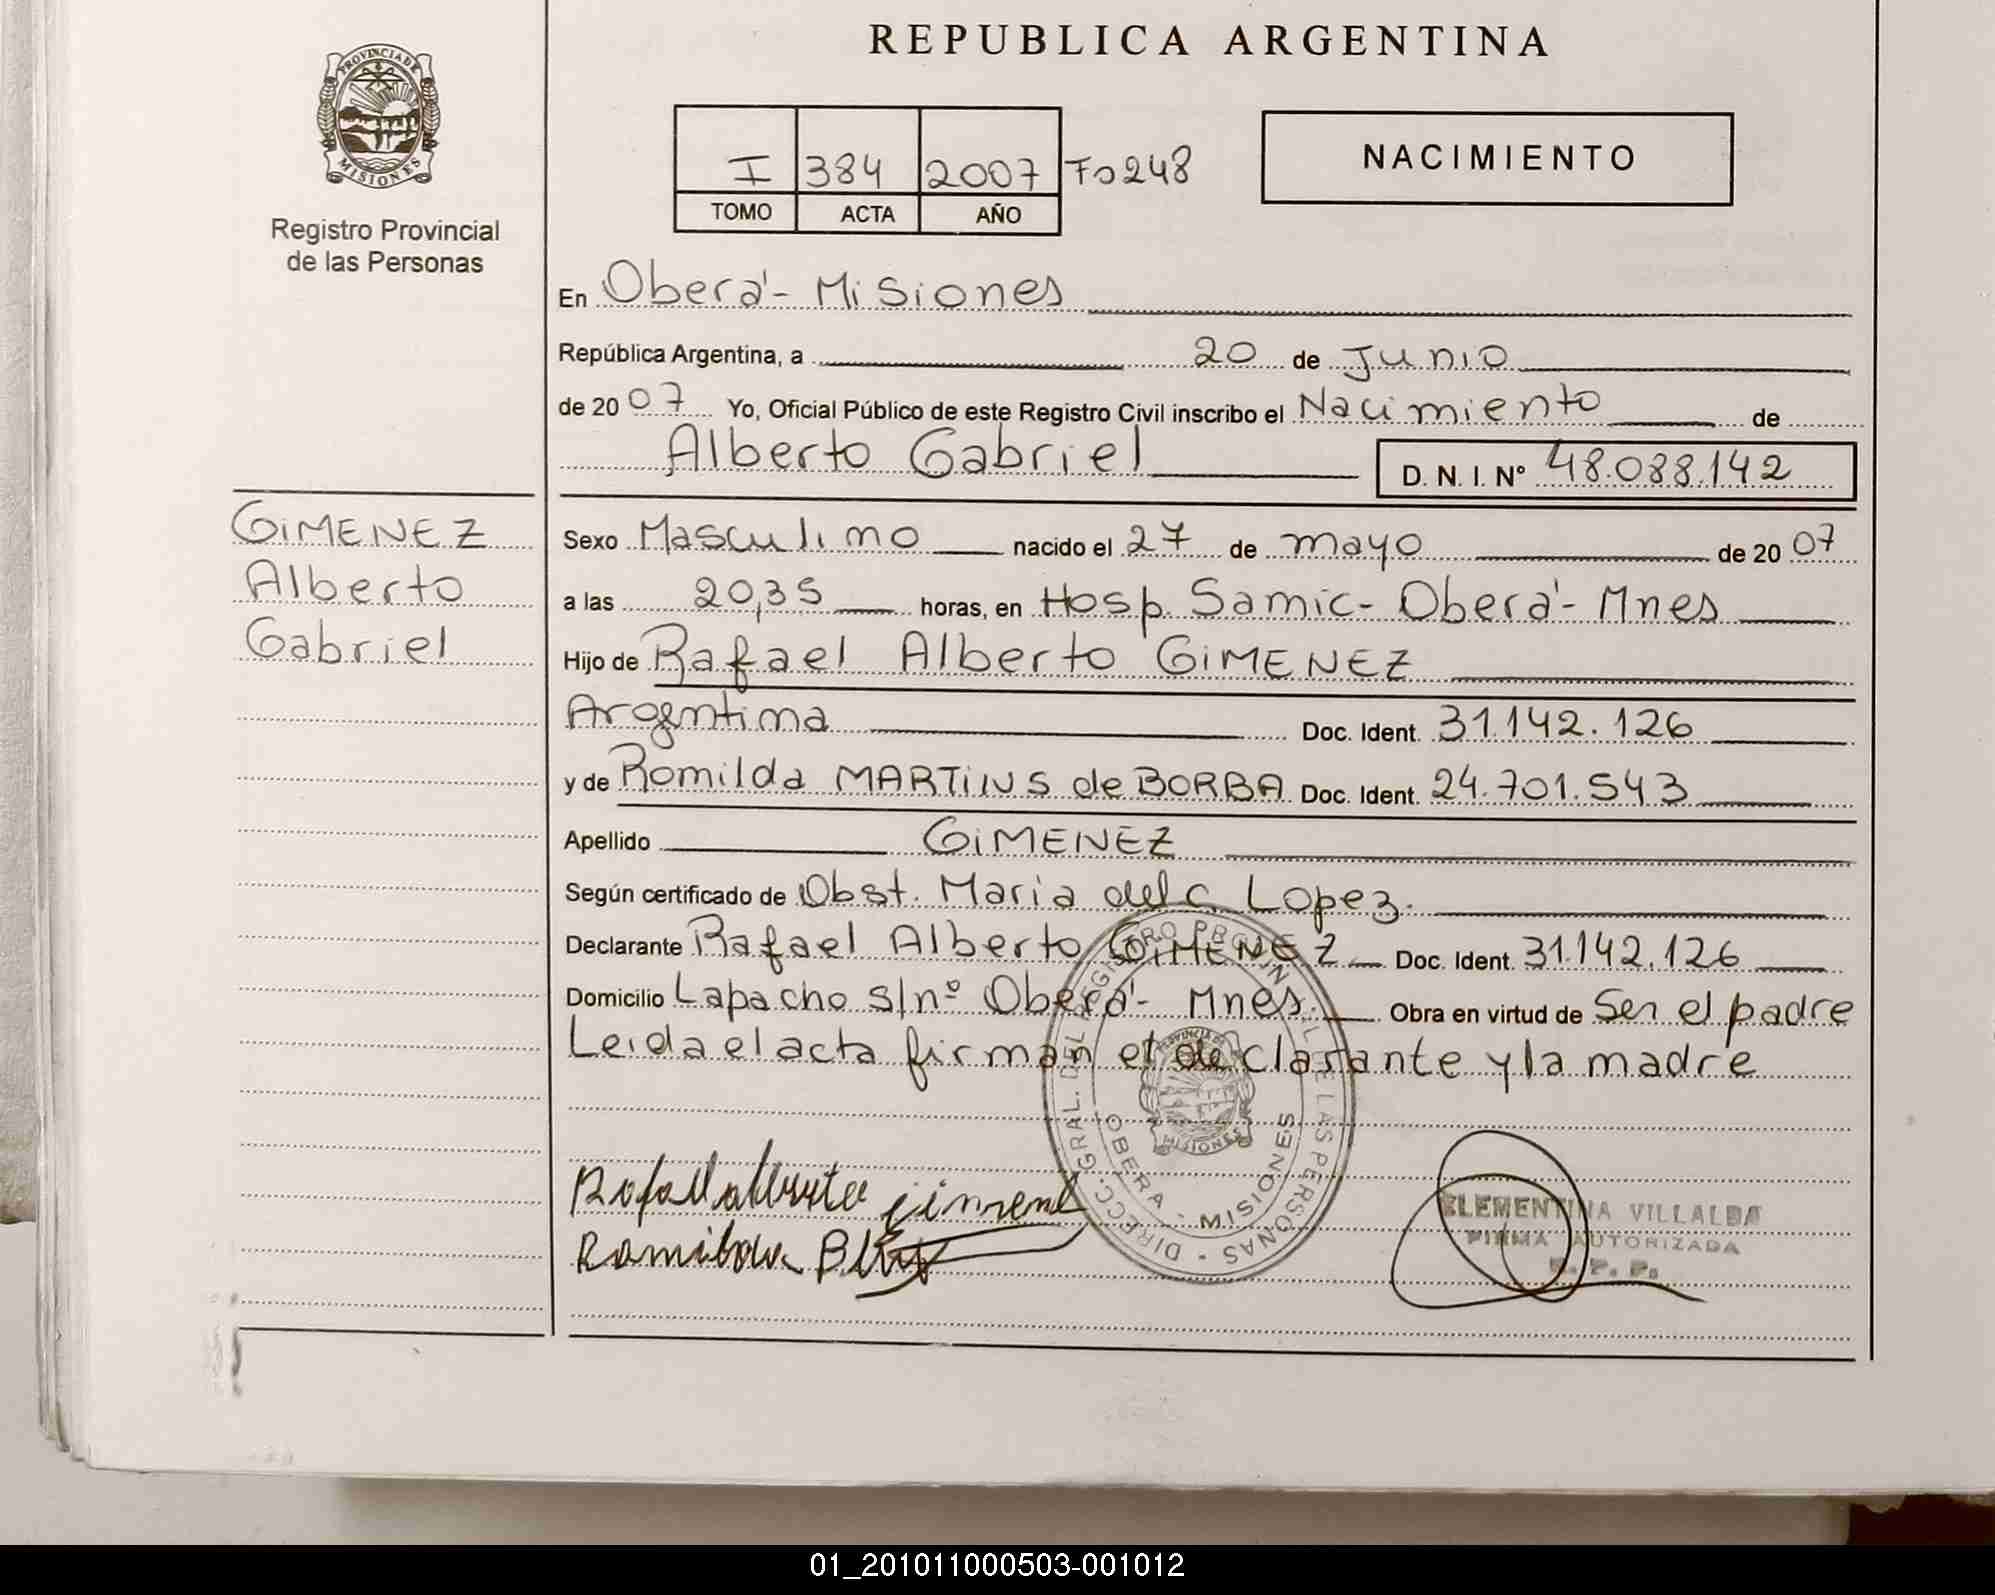 REPUBLICA ARGENTINA
PROVINCIA DE
MISIONES
Registro Provincial
de las Personas
I 384 2007 Fo 248
TOMO ACTA AÑO
NACIMIENTO
En Oberá - Misiones
República Argentina, a 20 de Junio
de 2007 Yo, Oficial Público de este Registro Civil inscribo el Nacimiento de
Alberto Gabriel D. N. I. Nº 48.088.142
GIMENEZ
Alberto
Gabriel
Sexo Masculino nacido el 27 de mayo de 2007
a las 20,35 horas, en Hosp. Samic - Oberá - Mnes
Hijo de Rafael Alberto GIMENEZ
Argentina Doc. Ident. 31.142.126
y de Romilda MARTINS de BORBA Doc. Ident. 24.701.543
Apellido GIMENEZ
Según certificado de Obst. Maria del C. Lopez.
Declarante Rafael Alberto GIMENEZ Doc. Ident. 31.142.126
Domicilio Lapacho s/nº Oberá - Mnes. Obra en virtud de Ser el padre
Leida el acta firman el declarante y la madre
DIRECC. GRAL. DEL REGISTRO PROVINCIAL DE LAS PERSONAS
PROVINCIA DE
MISIONES
OBERA - MISIONES
ELEMENTINA VILLALBA
FIRMA AUTORIZADA
R. P. P.
01_201011000503-001012